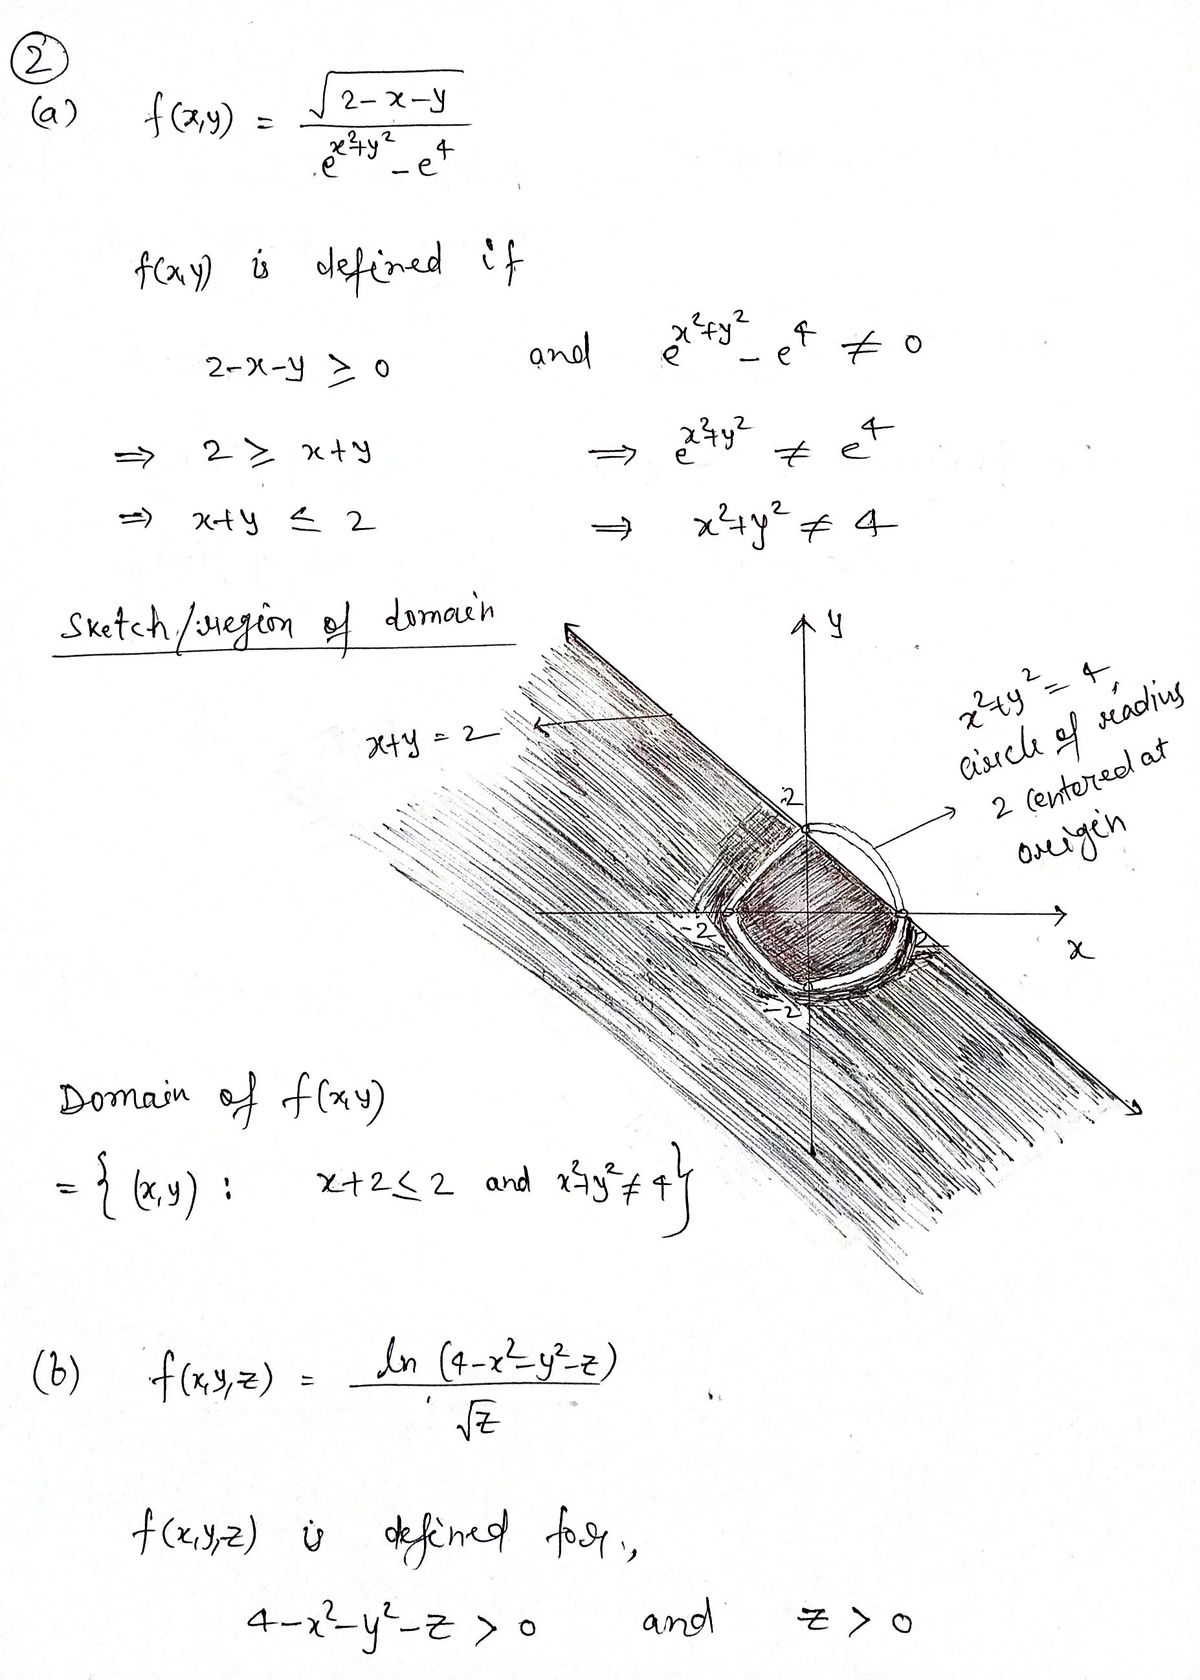 2
(a) f(x,y) = √(2-x-y) / (e^(x²+y²) - e⁴)
f(x,y) is defined if
2-x-y ≥ 0 and e^(x²+y²) - e⁴ ≠ 0
⇒ 2 ≥ x+y ⇒ e^(x²+y²) ≠ e⁴
⇒ x+y ≤ 2 ⇒ x²+y² ≠ 4
Sketch/region of domain
y
x²+y² = 4,
circle of radius
2 centered at
origin
x+y = 2
2
-2
2
x
-2
Domain of f(x,y)
= { (x,y) : x+2 ≤ 2 and x²+y² ≠ 4 }
(b) f(x,y,z) = ln (4-x²-y²-z) / √z
f(x,y,z) is defined for,
4-x²-y²-z > 0 and z > 0